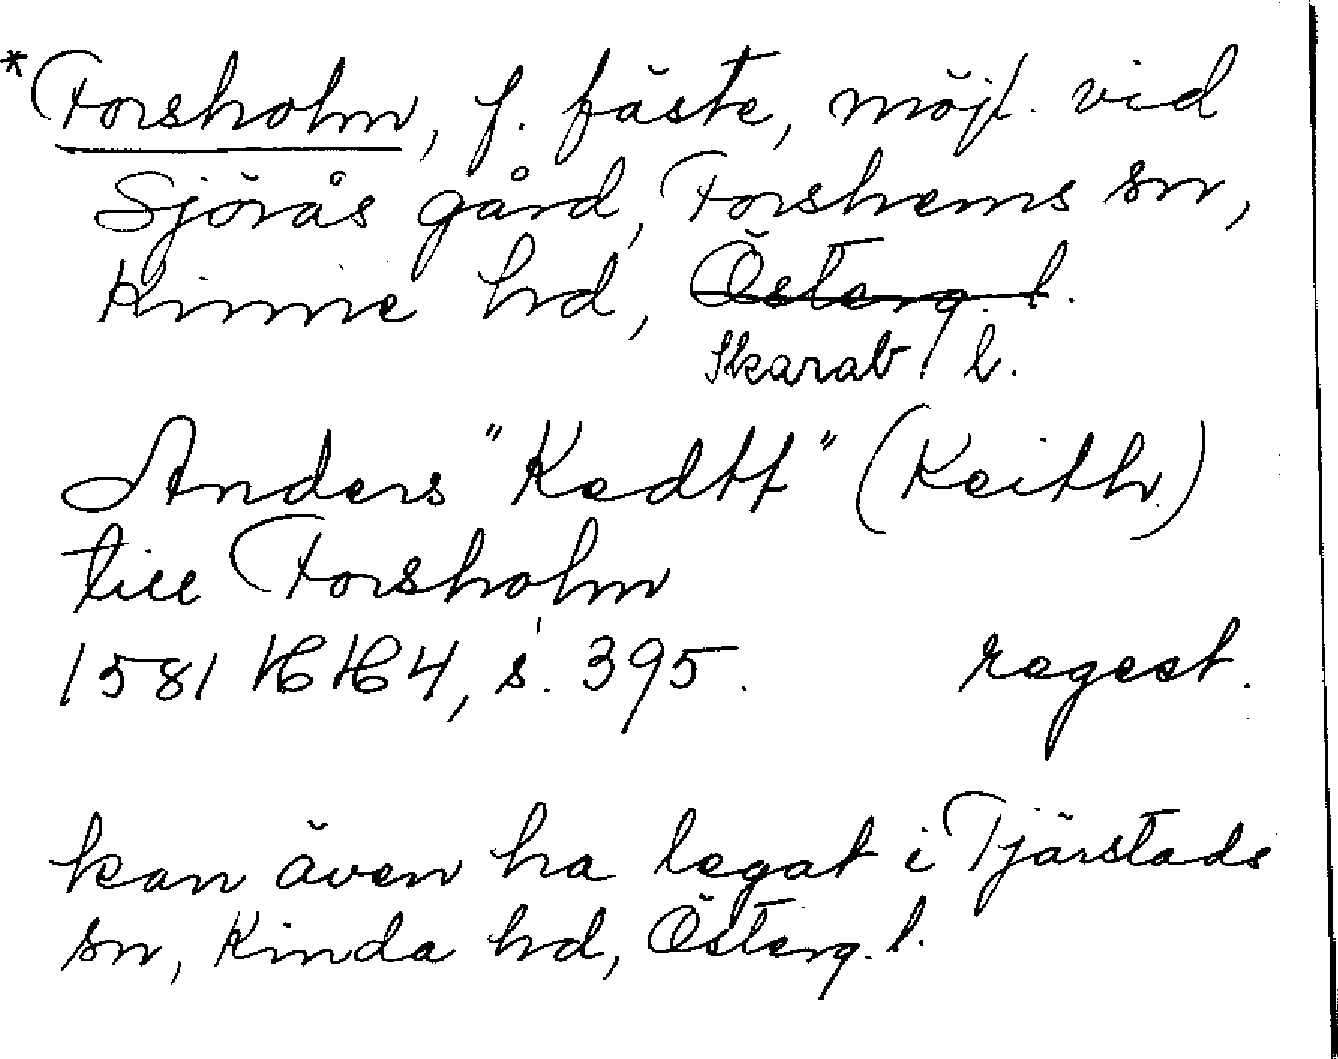 *Forsholm, f. fäste, möjl. vid
Sjörås gård, Forshems sn,
Kinne hd, Österg. l.
Skarab. l.
Anders "Kedtt" (Keith)
till Forsholm
1581 HH 4, s. 395. regest.
kan även ha legat i Tjärstads
sn, Kinda hd, Österg. l.